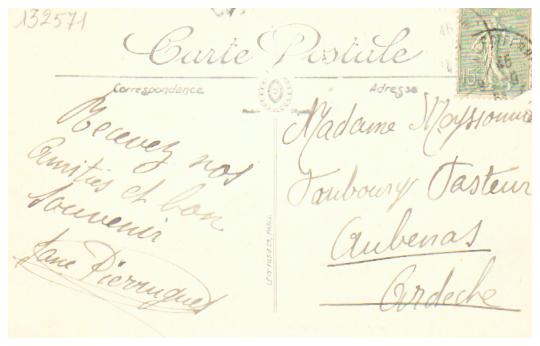 132571
Carte Postale
Correspondance
Adresse
Recevez nos
amitiés et bon
Souvenir
Jane Pierrugues
Madame Meyssonnier
Faubourg Pasteur
Aubenas
Ardèche